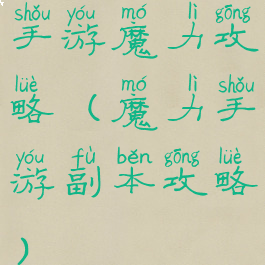 shǒu yóu mó lì gōng
手游魔力攻
lüè mó lì shǒu
略(魔力手
yóu fù běn gōng lüè
游副本攻略
)